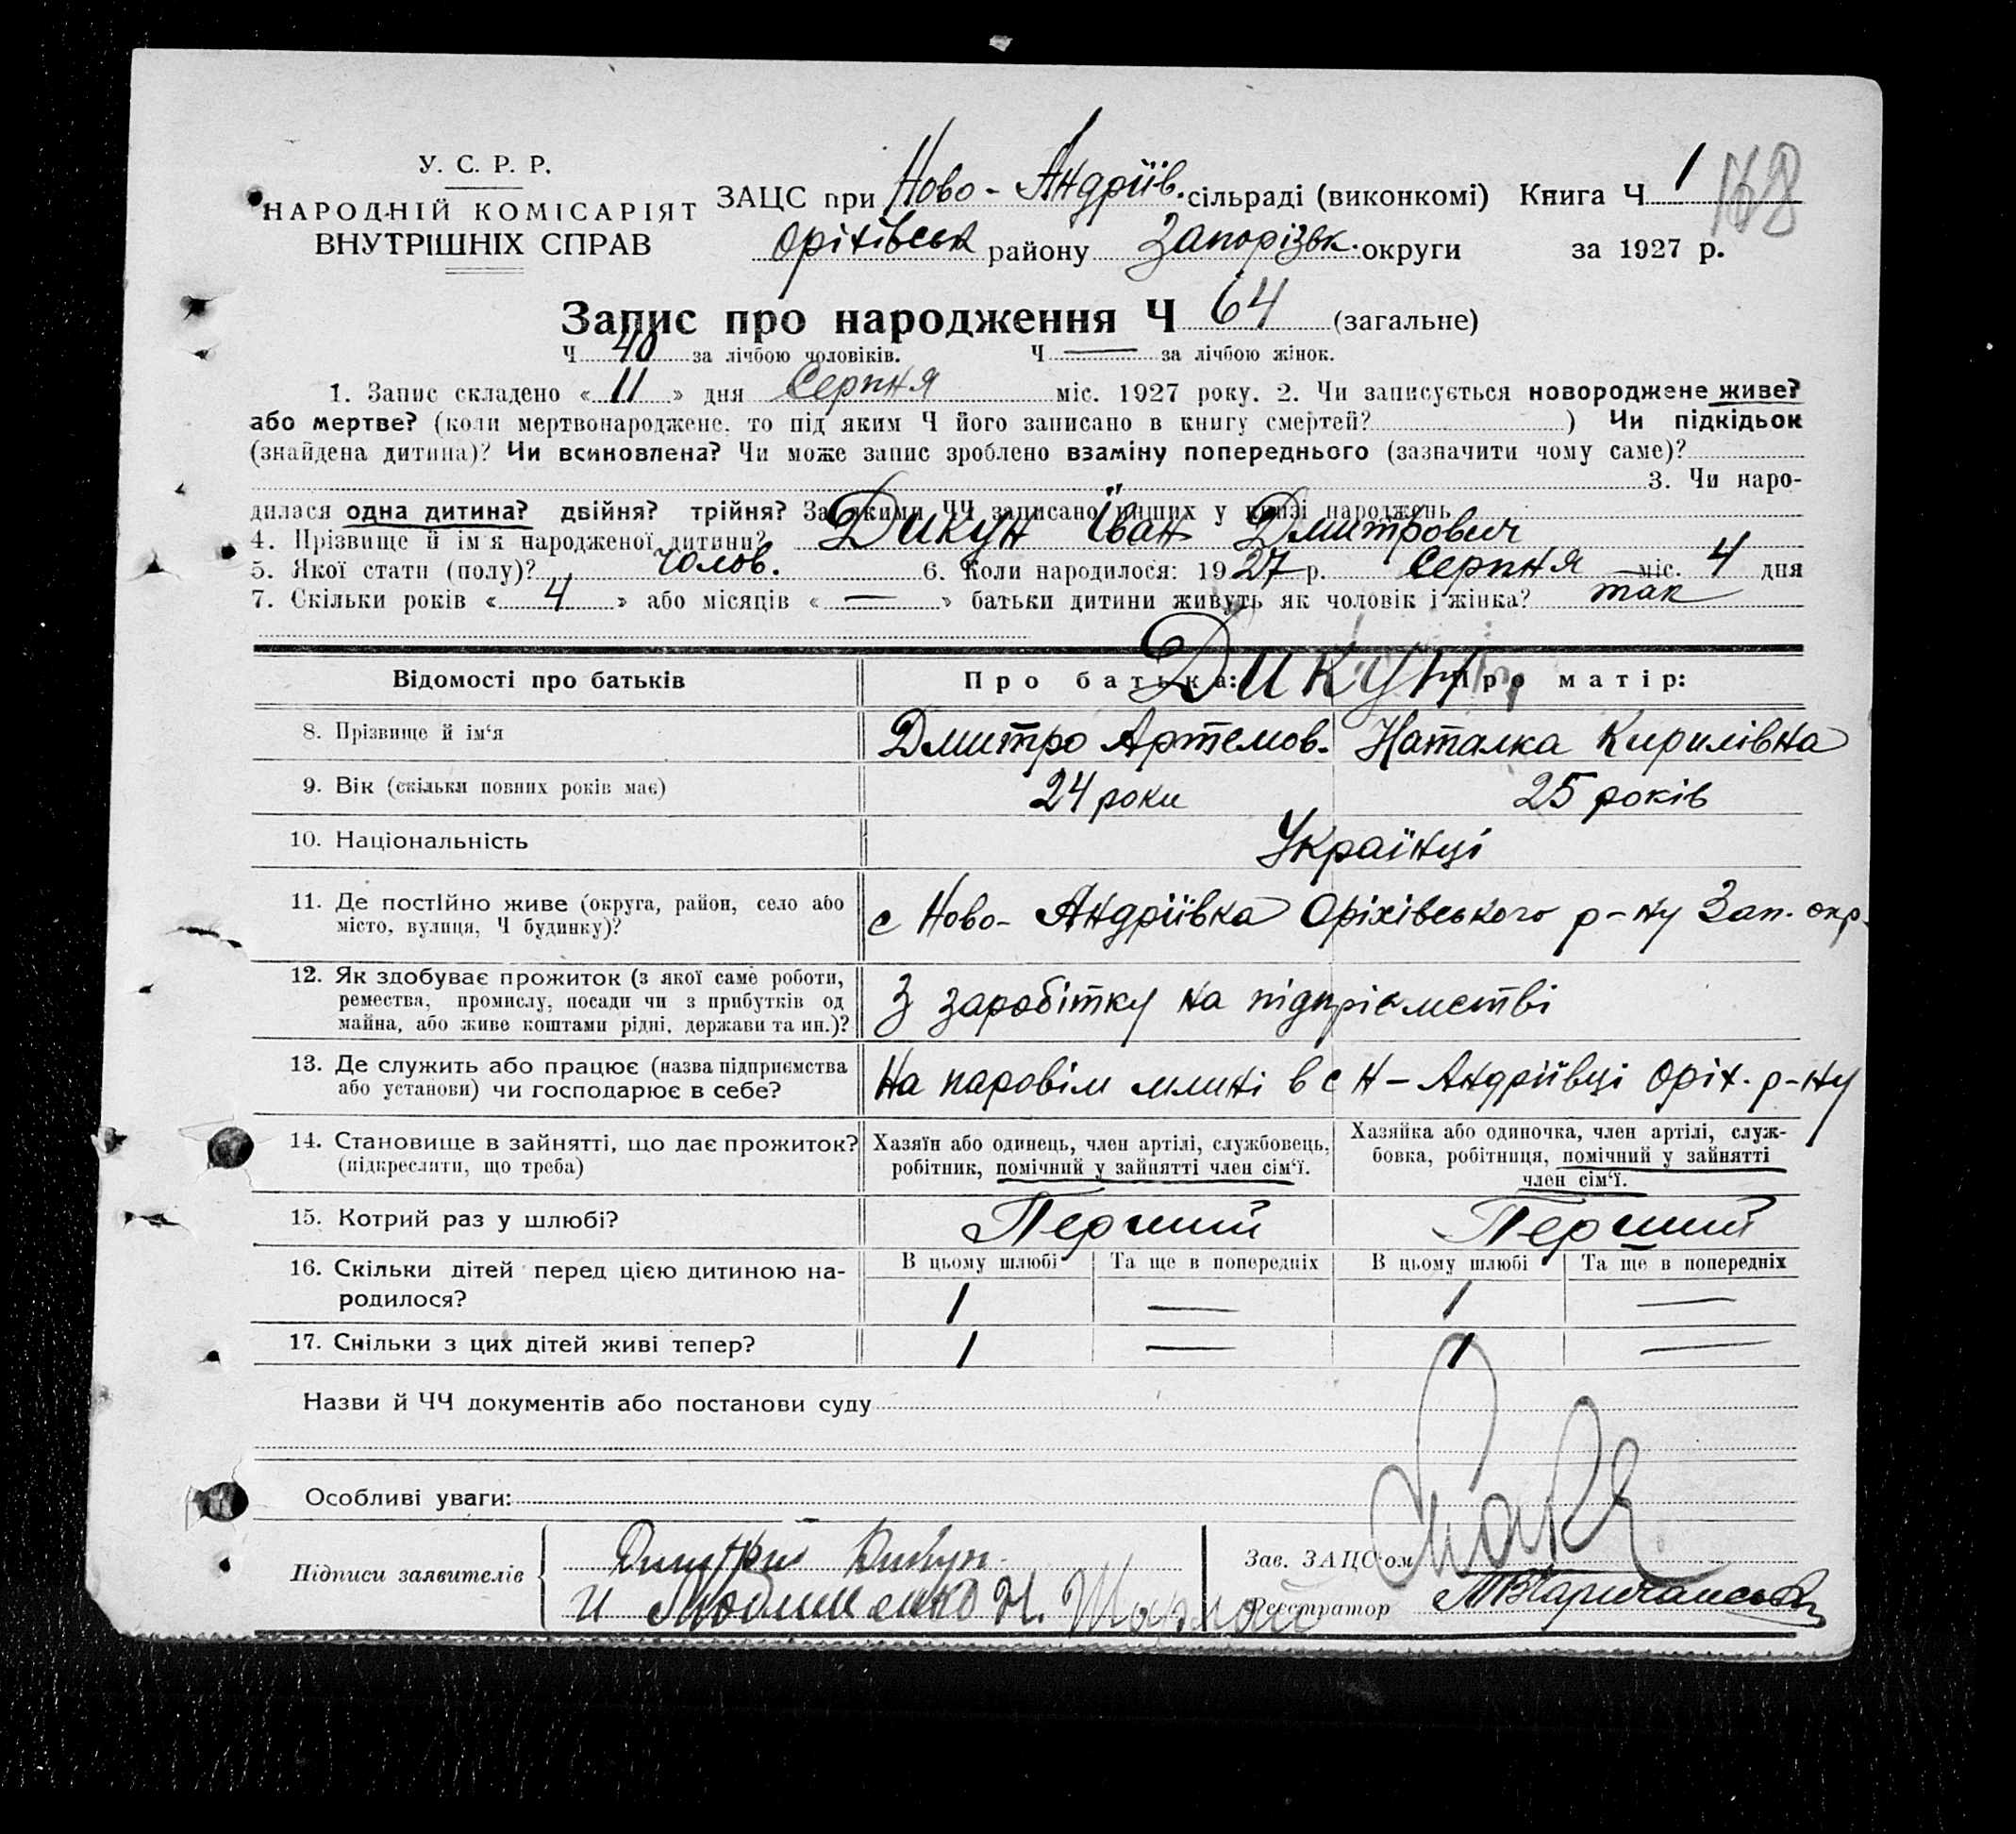 У. С. Р. Р.
НАРОДНІЙ КОМІСАРІЯТ
ВНУТРІШНІХ СПРАВ
ЗАЦС при Ново-Андріїв. сільраді (виконкомі) Книга Ч 1 168
Оріхівськ району Запорізьк. округи за 1927 р.
Запис про народження Ч 64 (загальне)
Ч 40 за лічбою чоловіків. Ч — за лічбою жінок.
1. Запис складено « 11 » дня Серпня міс. 1927 року. 2. Чи записується новороджене живе?
або мертве? (коли мертвонароджене, то під яким Ч його записано в книгу смертей? ) Чи підкідьок
(знайдена дитина)? Чи всиновлена? Чи може запис зроблено взаміну попереднього (зазначити чому саме)?
3. Чи наро-
дилася одна дитина? двійня? трійня? За якими ЧЧ записано инших у книзі народжень
4. Прізвище й ім'я народженої дитини? Дикун Іван Дмитрович
5. Якої стати (полу)? чолов. 6. Коли народилося: 1927 р. Серпня міс. 4 дня
7. Скільки років « 4 » або місяців « — » батьки дитини живуть як чоловік і жінка? так
Відомості про батьків Про батька: Дикун Про матір:
8. Прізвище й ім'я Дмитро Артемов. Наталка Кирилівна
9. Вік (скільки повних років має) 24 роки 25 років
10. Національність Українці
11. Де постійно живе (округа, район, село або
місто, вулиця, Ч будинку)? с Ново-Андріївка Оріхівського р-ну Зап. окр.
12. Як здобуває прожиток (з якої саме роботи,
ремества, промислу, посади чи з прибутків од
майна, або живе коштами рідні, держави та ин.)? З заробітку на підприємстві
13. Де служить або працює (назва підприємства
або установи) чи господарює в себе? На паровім млині в с Н-Андріївці Оріх. р-ну
14. Становище в зайнятті, що дає прожиток?
(підкреслити, що треба)
Хазяїн або одинець, член артілі, службовець,
робітник, помічний у зайнятті член сім'ї.
Хазяйка або одиночка, член артілі, служ-
бовка, робітниця, помічний у зайнятті
член сім'ї.
15. Котрий раз у шлюбі? Перший Перший
16. Скільки дітей перед цією дитиною на-
родилося?
В цьому шлюбі Та ще в попередніх В цьому шлюбі Та ще в попередніх
1 — 1 —
17. Скільки з цих дітей живі тепер? 1 — 1 —
Назви й ЧЧ документів або постанови суду
Особливі уваги:
Підписи заявителів
Дмитрий Дикун
и
Зав. ЗАЦС'ом
Реєстратор